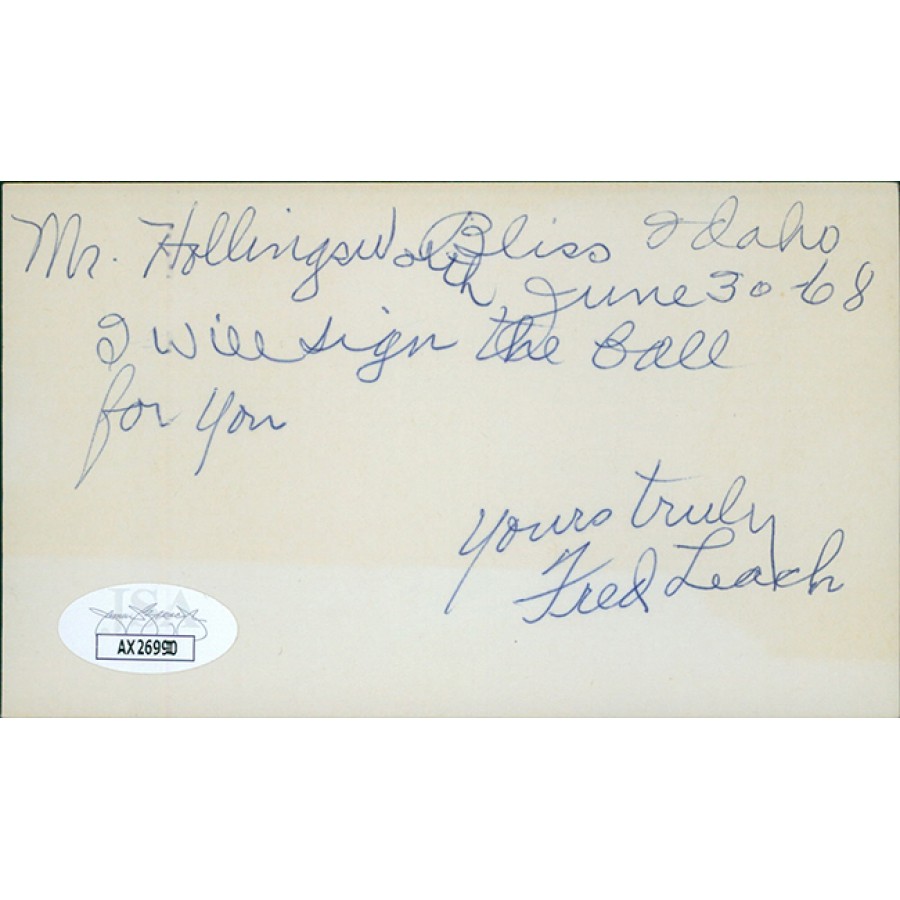 Mr. Hollingsworth
Bliss Idaho
June 30-68
I will sign the Ball
for you
yours truly
Fred Leach
JSA
AX26990